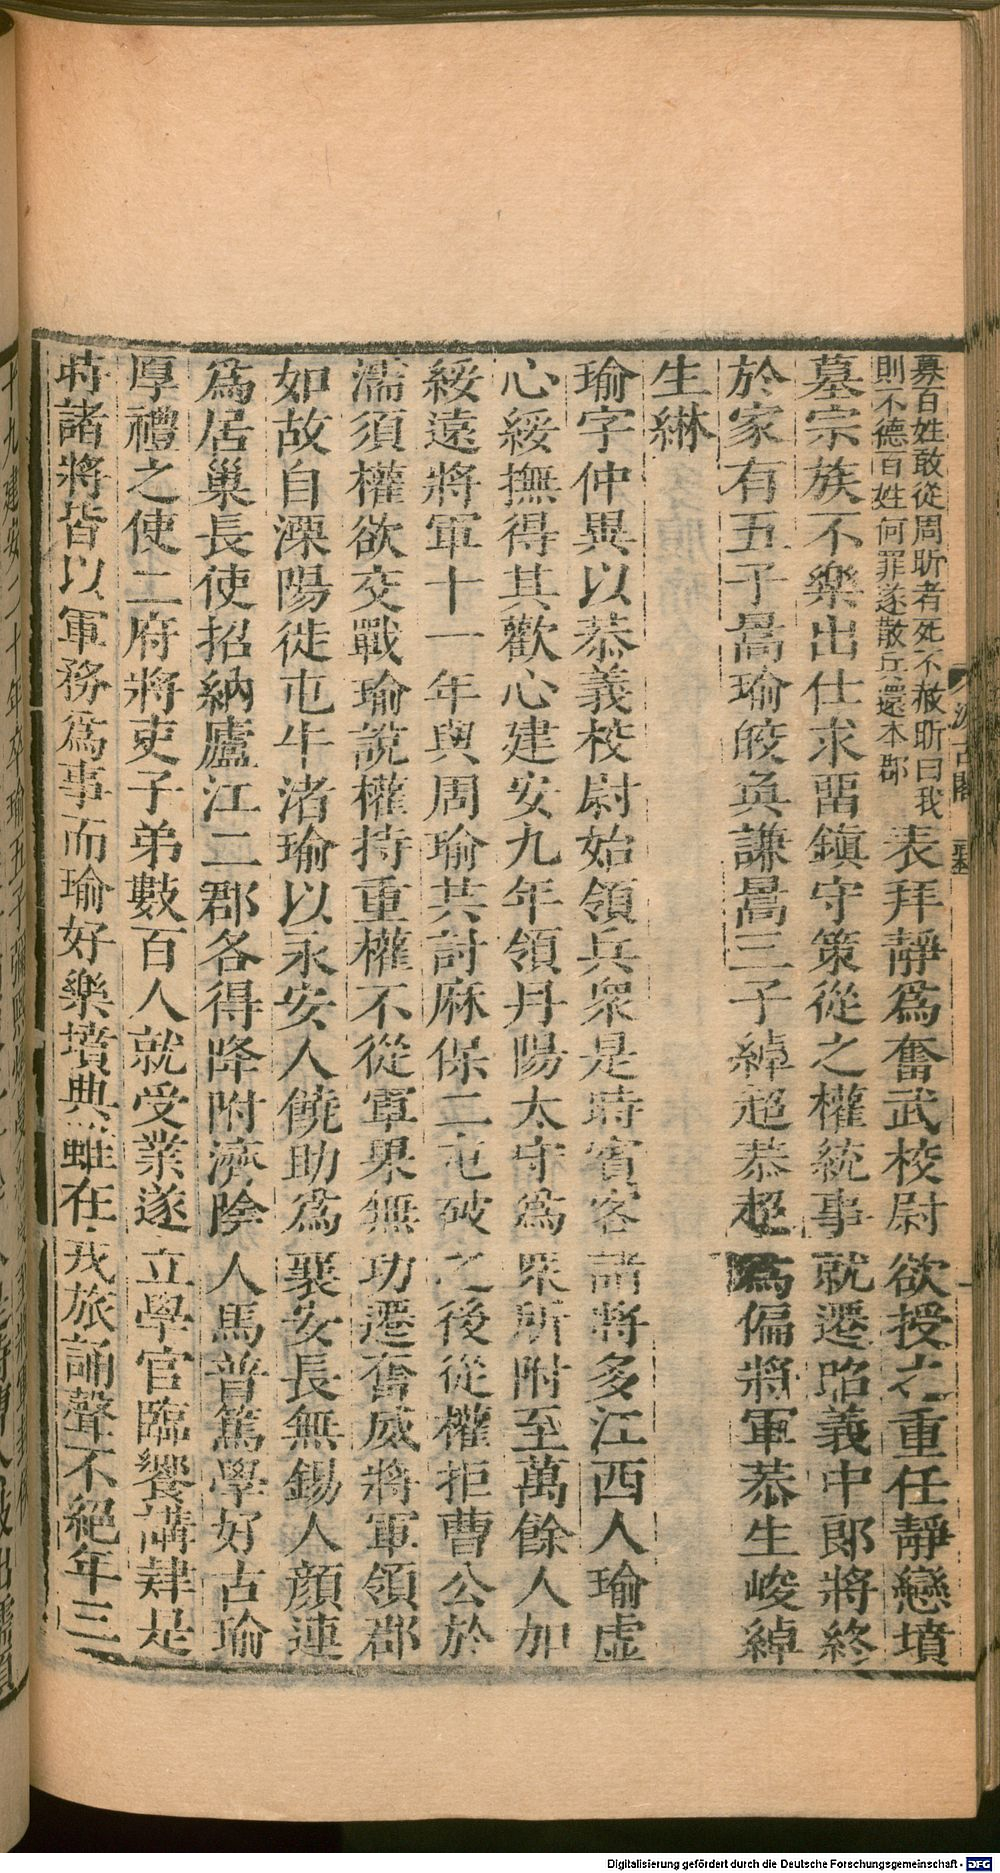 募百姓敢從周昕者死不赦昕曰我
則不德百姓何罪遂散兵還本郡
表拜靜爲奮武校尉欲授之重任靜戀墳
墓宗族不樂出仕求畱鎮守策從之權統事就遷昭義中郎將終
於家有五子暠瑜皎奐謙暠三子綽超恭超爲偏將軍恭生峻綽
生綝
瑜字仲異以恭義校尉始領兵衆是時賓客諸將多江西人瑜虛
心綏撫得其歡心建安九年領丹陽太守爲衆所附至萬餘人加
綏遠將軍十一年與周瑜共討麻保二屯破之後從權拒曹公於
濡須權欲交戰瑜說權持重權不從軍果無功遷奮威將軍領郡
如故自溧陽徙屯牛渚瑜以永安人饒助爲襄安長無錫人顏連
爲居巢長使招納廬江二郡各得降附濟陰人馬普篤學好古瑜
厚禮之使二府將吏子弟數百人就受業遂立學官臨饗講肄是
時諸將皆以軍務爲事而瑜好樂墳典雖在戎旅誦聲不絕年三
Digitalisierung gefördert durch die Deutsche Forschungsgemeinschaft - DFG